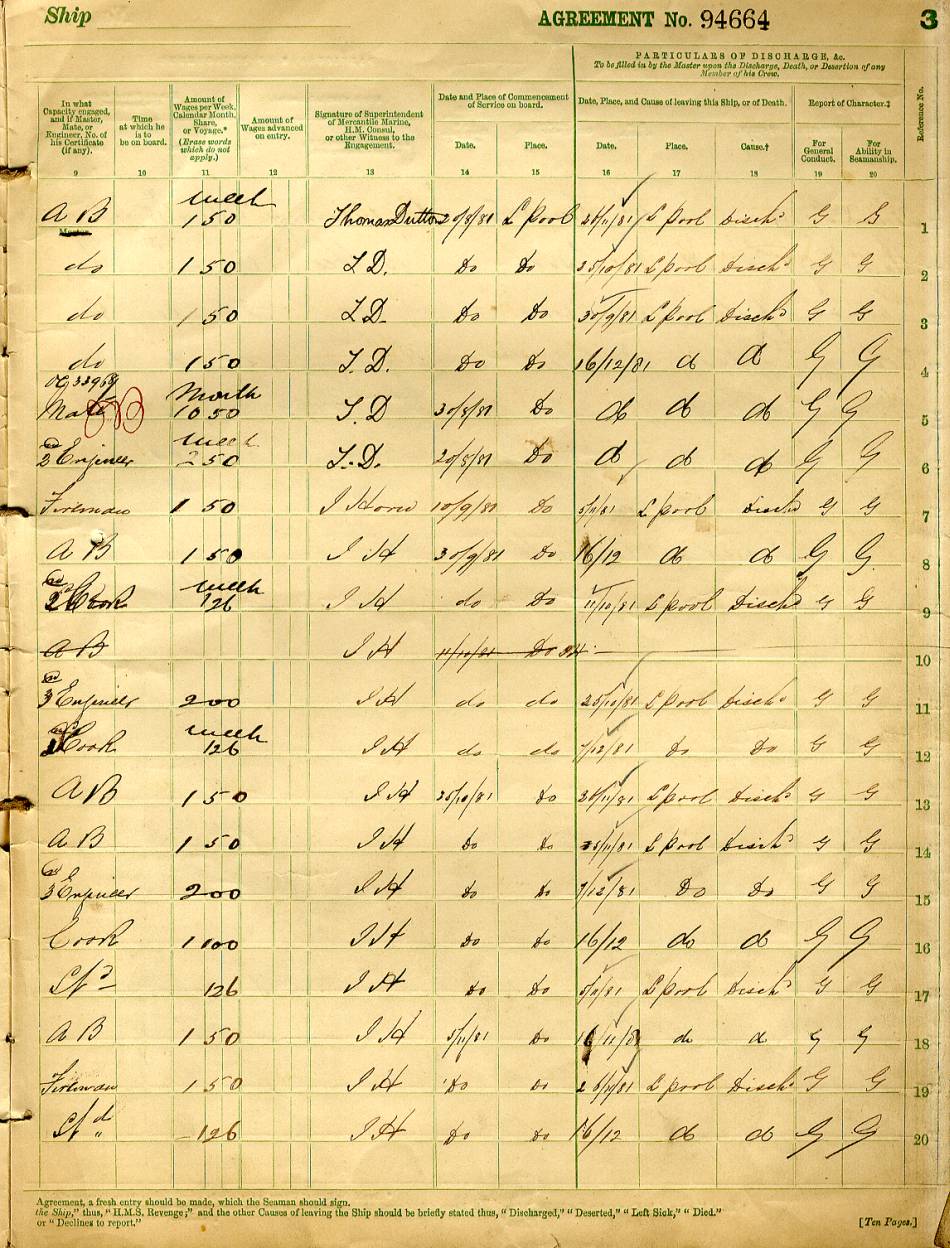 Ship
AGREEMENT No. 94664
3
PARTICULARS OF DISCHARGE, &c.
To be filled in by the Master upon the Discharge, Death, or Desertion of any
Member of his Crew.
In what Capacity engaged, and if Master, Mate, or Engineer, No. of his Certificate (if any).
Time at which he is to be on board.
Amount of Wages per Week, Calendar Month, Share, or Voyage.* (Erase words which do not apply.)
Amount of Wages advanced on entry.
Signature of Superintendent of Mercantile Marine, H.M. Consul, or other Witness to the Engagement.
Date and Place of Commencement of Service on board.
Date. Place.
Date, Place, and Causes of leaving this Ship, or of Death.
Date. Place. Cause.†
Report of Character.‡
For General Conduct. For Ability in Seamanship.
Reference No.
9 10 11 12 13 14 15 16 17 18 19 20
week
A B 1 50 Thomas Dutton 20/8/81 L pool L pool Disch d G G 1
do 1 50 T D. Do Do 25/10/81 L pool Disch d G G 2
do 1 50 T D. Do Do 30/9/81 L pool Disch d G G 3
do 1 50 T. D. Do Do 16/12/81 d d G G 4
Month
Mate 10 50 T. D 30/8/81 Do d d d G G 5
week
2nd Engineer 2 50 T. D. 20/8/81 Do d d d G G 6
Fireman 1 50 10/9/81 Do 5/11/81 L pool Disch d G G 7
A B 1 50 I H 30/9/81 Do 16/12 d d G G. 8
week
2nd Cook 126 I H do Do 11/10/81 L pool Disch d G G 9
A B I H 11/10/81 Do 10
3rd Engineer 200 I H do do 25/10/81 L pool Disch d G G 11
week
Cook 126 I H do do 7/12/81 Do Do G G 12
A B 1 50 I H 25/10/81 Do L pool Disch d G G 13
A B 1 50 I H Do Do 25/11/81 L pool Disch d G G 14
3rd Engineer 200 I H Do Do 7/12/81 Do Do G G 15
Cook 1 100 I H Do Do 16/12 do d G G 16
126 I H Do Do 5/11/81 L pool Disch d G G 17
A B 1 50 I H 5/11/81 Do d d G G 18
Fireman 1 50 I H Do Do L pool Disch d G G 19
126 I H Do Do 16/12 d d G G 20
Agreement, a fresh entry should be made, which the Seaman should sign.
the Ship," thus, "H.M.S. Revenge;" and the other Causes of leaving the Ship should be briefly stated thus, "Discharged," "Deserted," "Left Sick," "Died."
or "Declines to report."
[Ten Pages.]